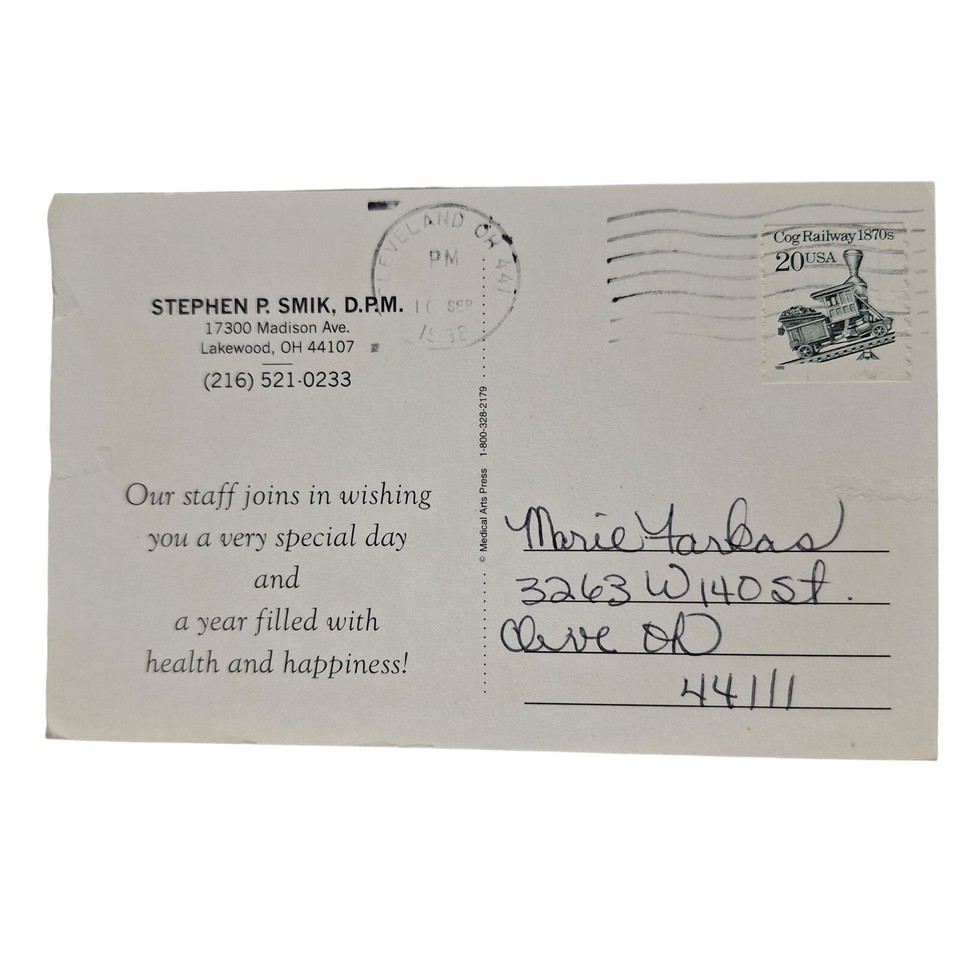 STEPHEN P. SMIK, D.P.M.
17300 Madison Ave.
Lakewood, OH 44107
(216) 521-0233
Our staff joins in wishing
you a very special day
and
a year filled with
health and happiness!
CLEVELAND OH 441
PM
10 SEP
© Medical Arts Press 1-800-328-2179
Cog Railway 1870s
20 USA
Marie Farkas
3263 W 140 St.
Cleve OH
44111